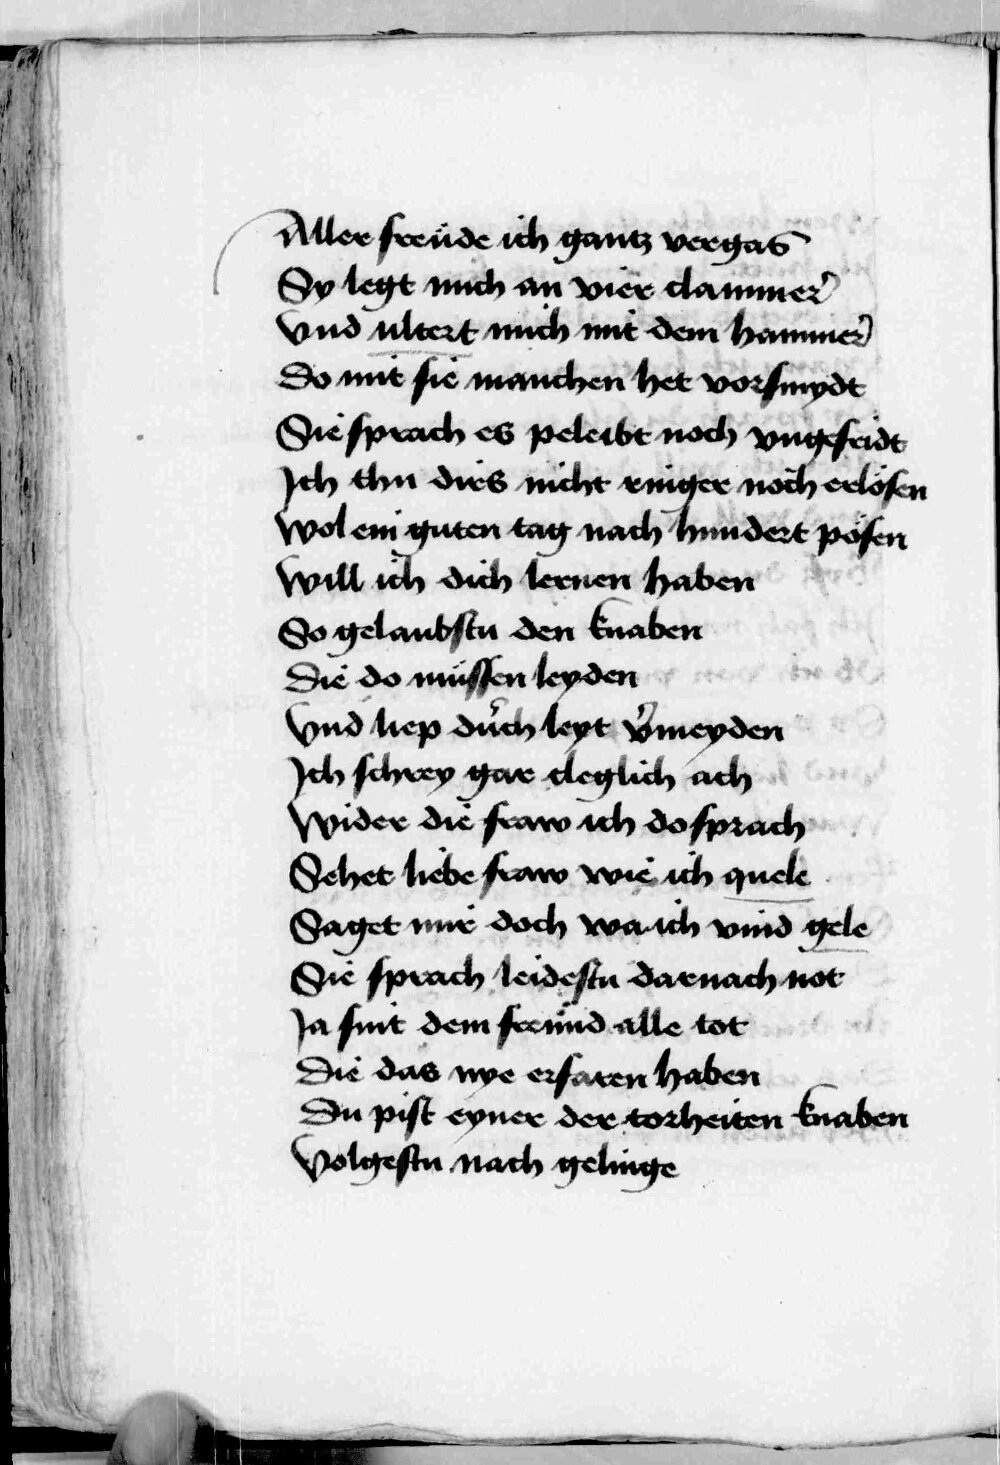 Aller freüde ich gantz vergas
Sy legt mich an vier clammer̄
Vnd ultert mich mit dem hammer̄
Do mit sie manchen het vorsmydt
Sie sprach es peleibt noch vngefridt
Ich thu dirs nicht ringer noch erlösen
Wol ein guten tag nach hundert pösen
Will ich dich lernen haben
So gelaubstu den knaben
Die do müssen leyden
Vnd liep durch leyt v̄meyden
Ich schrey gar cleglich ach
Wider die fraw ich do sprach
Sehet liebe fraw wie ich quele
Saget mir doch wa ich vind gele
Sie sprach leidestu darnach not
Ja sint dem freünd alle tot
Die das nye erfaren haben
Du pist eyner der torheiten knaben
Volgestu nach gelinge